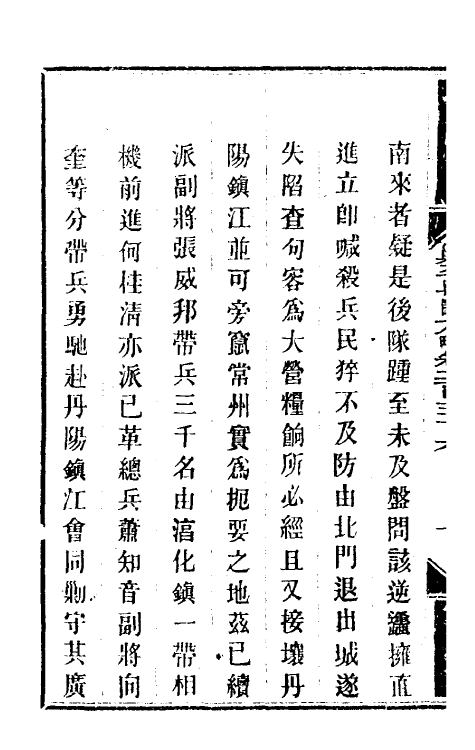 南來者疑是後隊踵至未及盤問該逆蠭擁直
進立卽喊殺兵民猝不及防由北門退出城遂
失陷查句容爲大營糧餉所必經且又接壤丹
陽鎮江並可旁竄常州實爲扼要之地茲已續
派副將張威邦帶兵三千名由湻化鎮一帶相
機前進何桂淸亦派已革總兵蕭知音副將向
奎等分帶兵勇馳赴丹陽鎮江會同勦守其廣